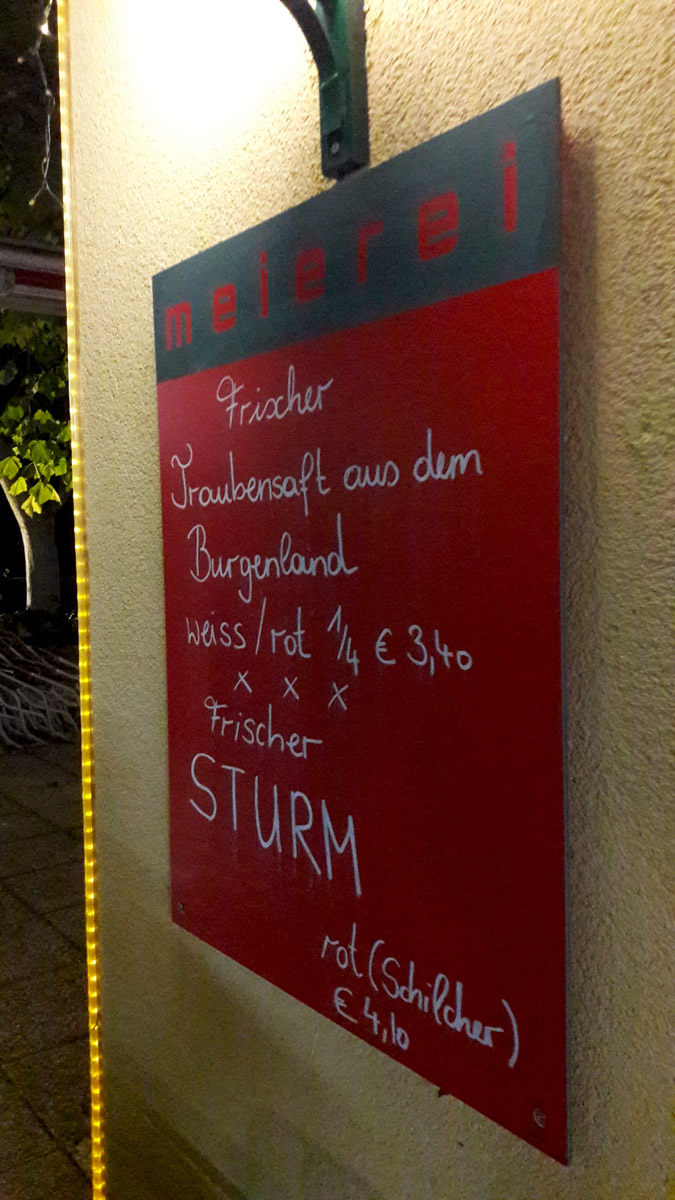 meierei
Frischer
Traubensaft aus dem
Burgenland
weiss/rot 1/4 € 3,40
x x x
Frischer
STURM
rot (Schilcher)
€ 4,10